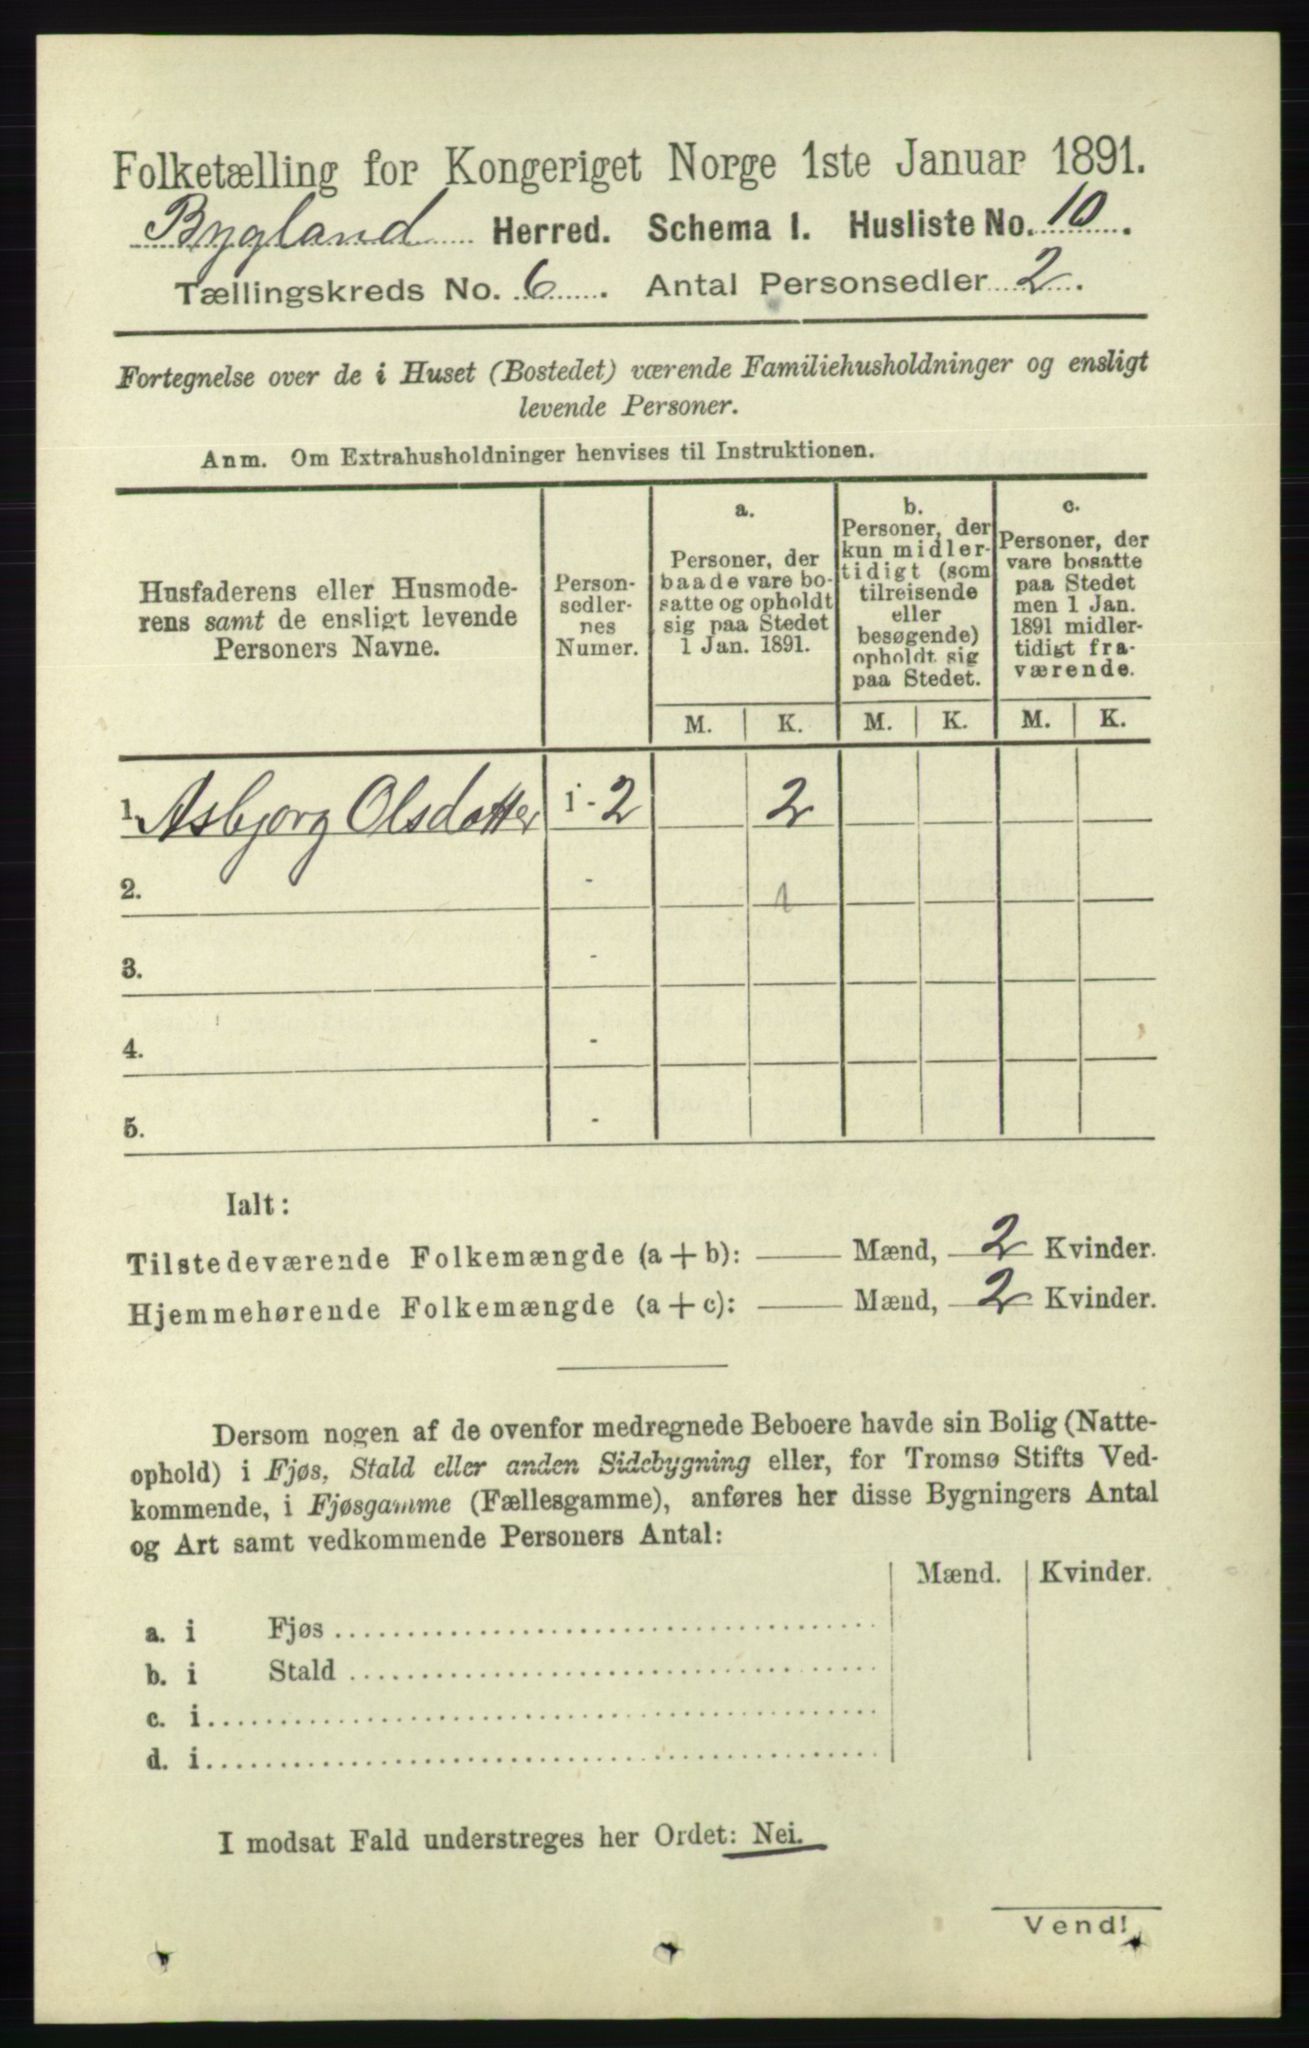 Folketælling for Kongeriget Norge 1ste Januar 1891.
Bygland Herred. Schema I. Husliste No. 10.
Tællingskreds No. 6. Antal Personsedler 2.
Fortegnelse over de i Huset (Bostedet) værende Familiehusholdninger og ensligt
levende Personer.
Anm. Om Extrahusholdninger henvises til Instruktionen.
Husfaderens eller Husmode-
rens samt de ensligt levende
Personers Navne.
Person-
sedler-
nes
Numer.
a.
Personer, der
baade vare bo-
satte og opholdt
sig paa Stedet
1 Jan. 1891.
b.
Personer, der
kun midler-
tidigt (som
tilreisende
eller
besøgende)
opholdt sig
paa Stedet.
c.
Personer, der
vare bosatte
paa Stedet
men 1 Jan.
1891 midler-
tidigt fra-
værende.
M. K. M. K. M. K.
1. Asbjorg Olsdatter 1 - 2 2
2. - 1
3. -
4. -
5. -
Ialt:
Tilstedeværende Folkemængde (a + b): — Mænd, 2 Kvinder.
Hjemmehørende Folkemængde (a + c): — Mænd, 2 Kvinder.
Dersom nogen af de ovenfor medregnede Beboere havde sin Bolig (Natte-
ophold) i Fjøs, Stald eller anden Sidebygning eller, for Tromsø Stifts Ved-
kommende, i Fjøsgamme (Fællesgamme), anføres her disse Bygningers Antal
og Art samt vedkommende Personers Antal:
Mænd. Kvinder.
a. i Fjøs
b. i Stald
c. i
d. i
I modsat Fald understreges her Ordet: Nei.
Vend!